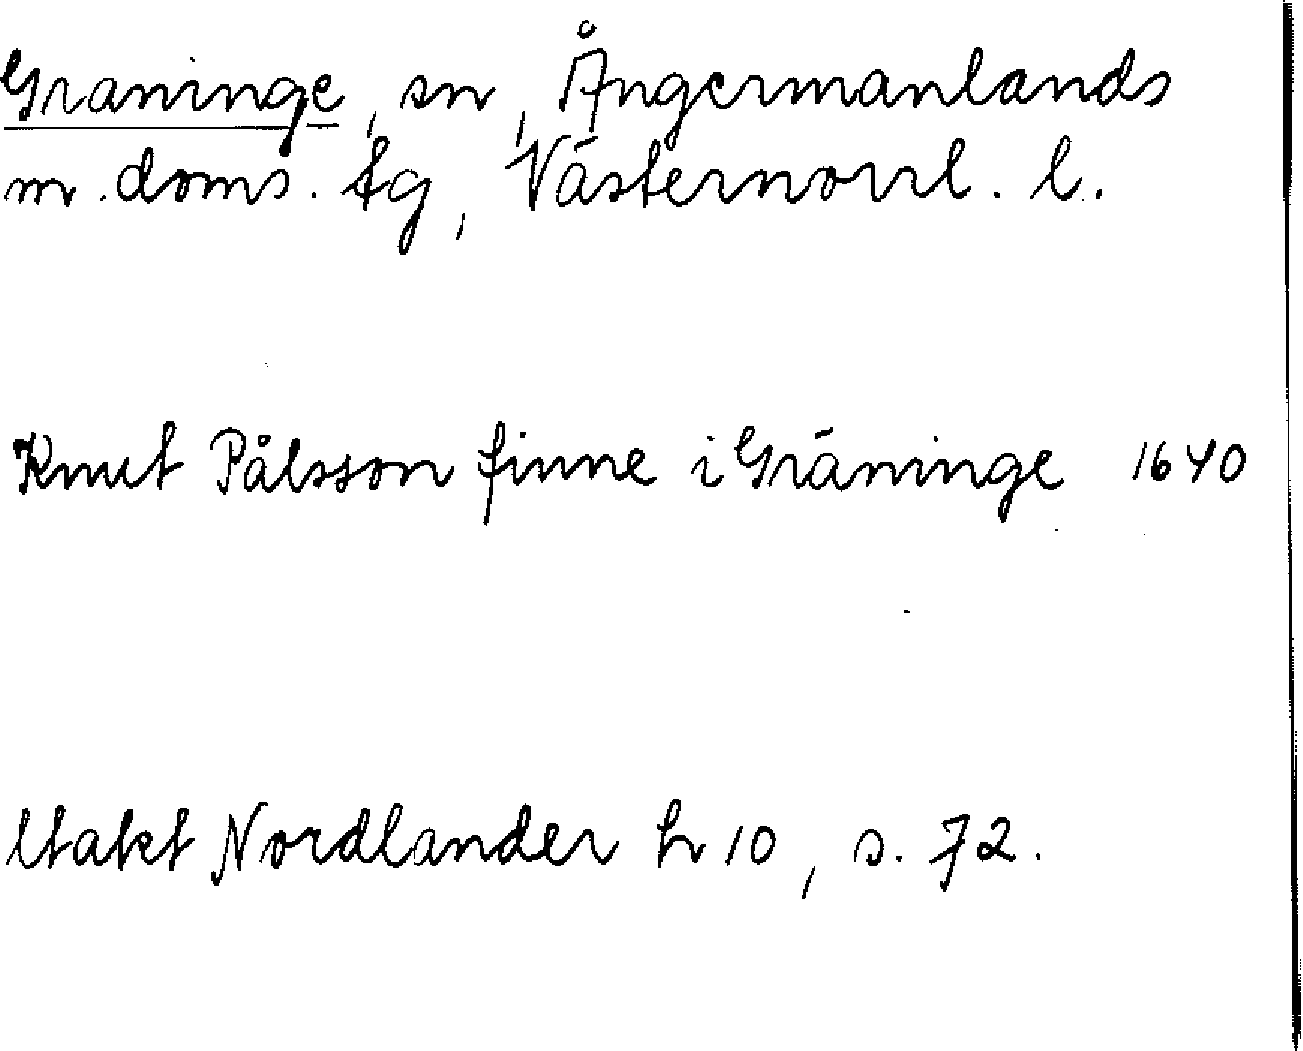 Graninge, sn, Ångermanlands
m. doms. tg, Västernorrl. l.
Knut Pålsson finne i Gräninge 1640
Utakt Nordlander h 10, s. 72.